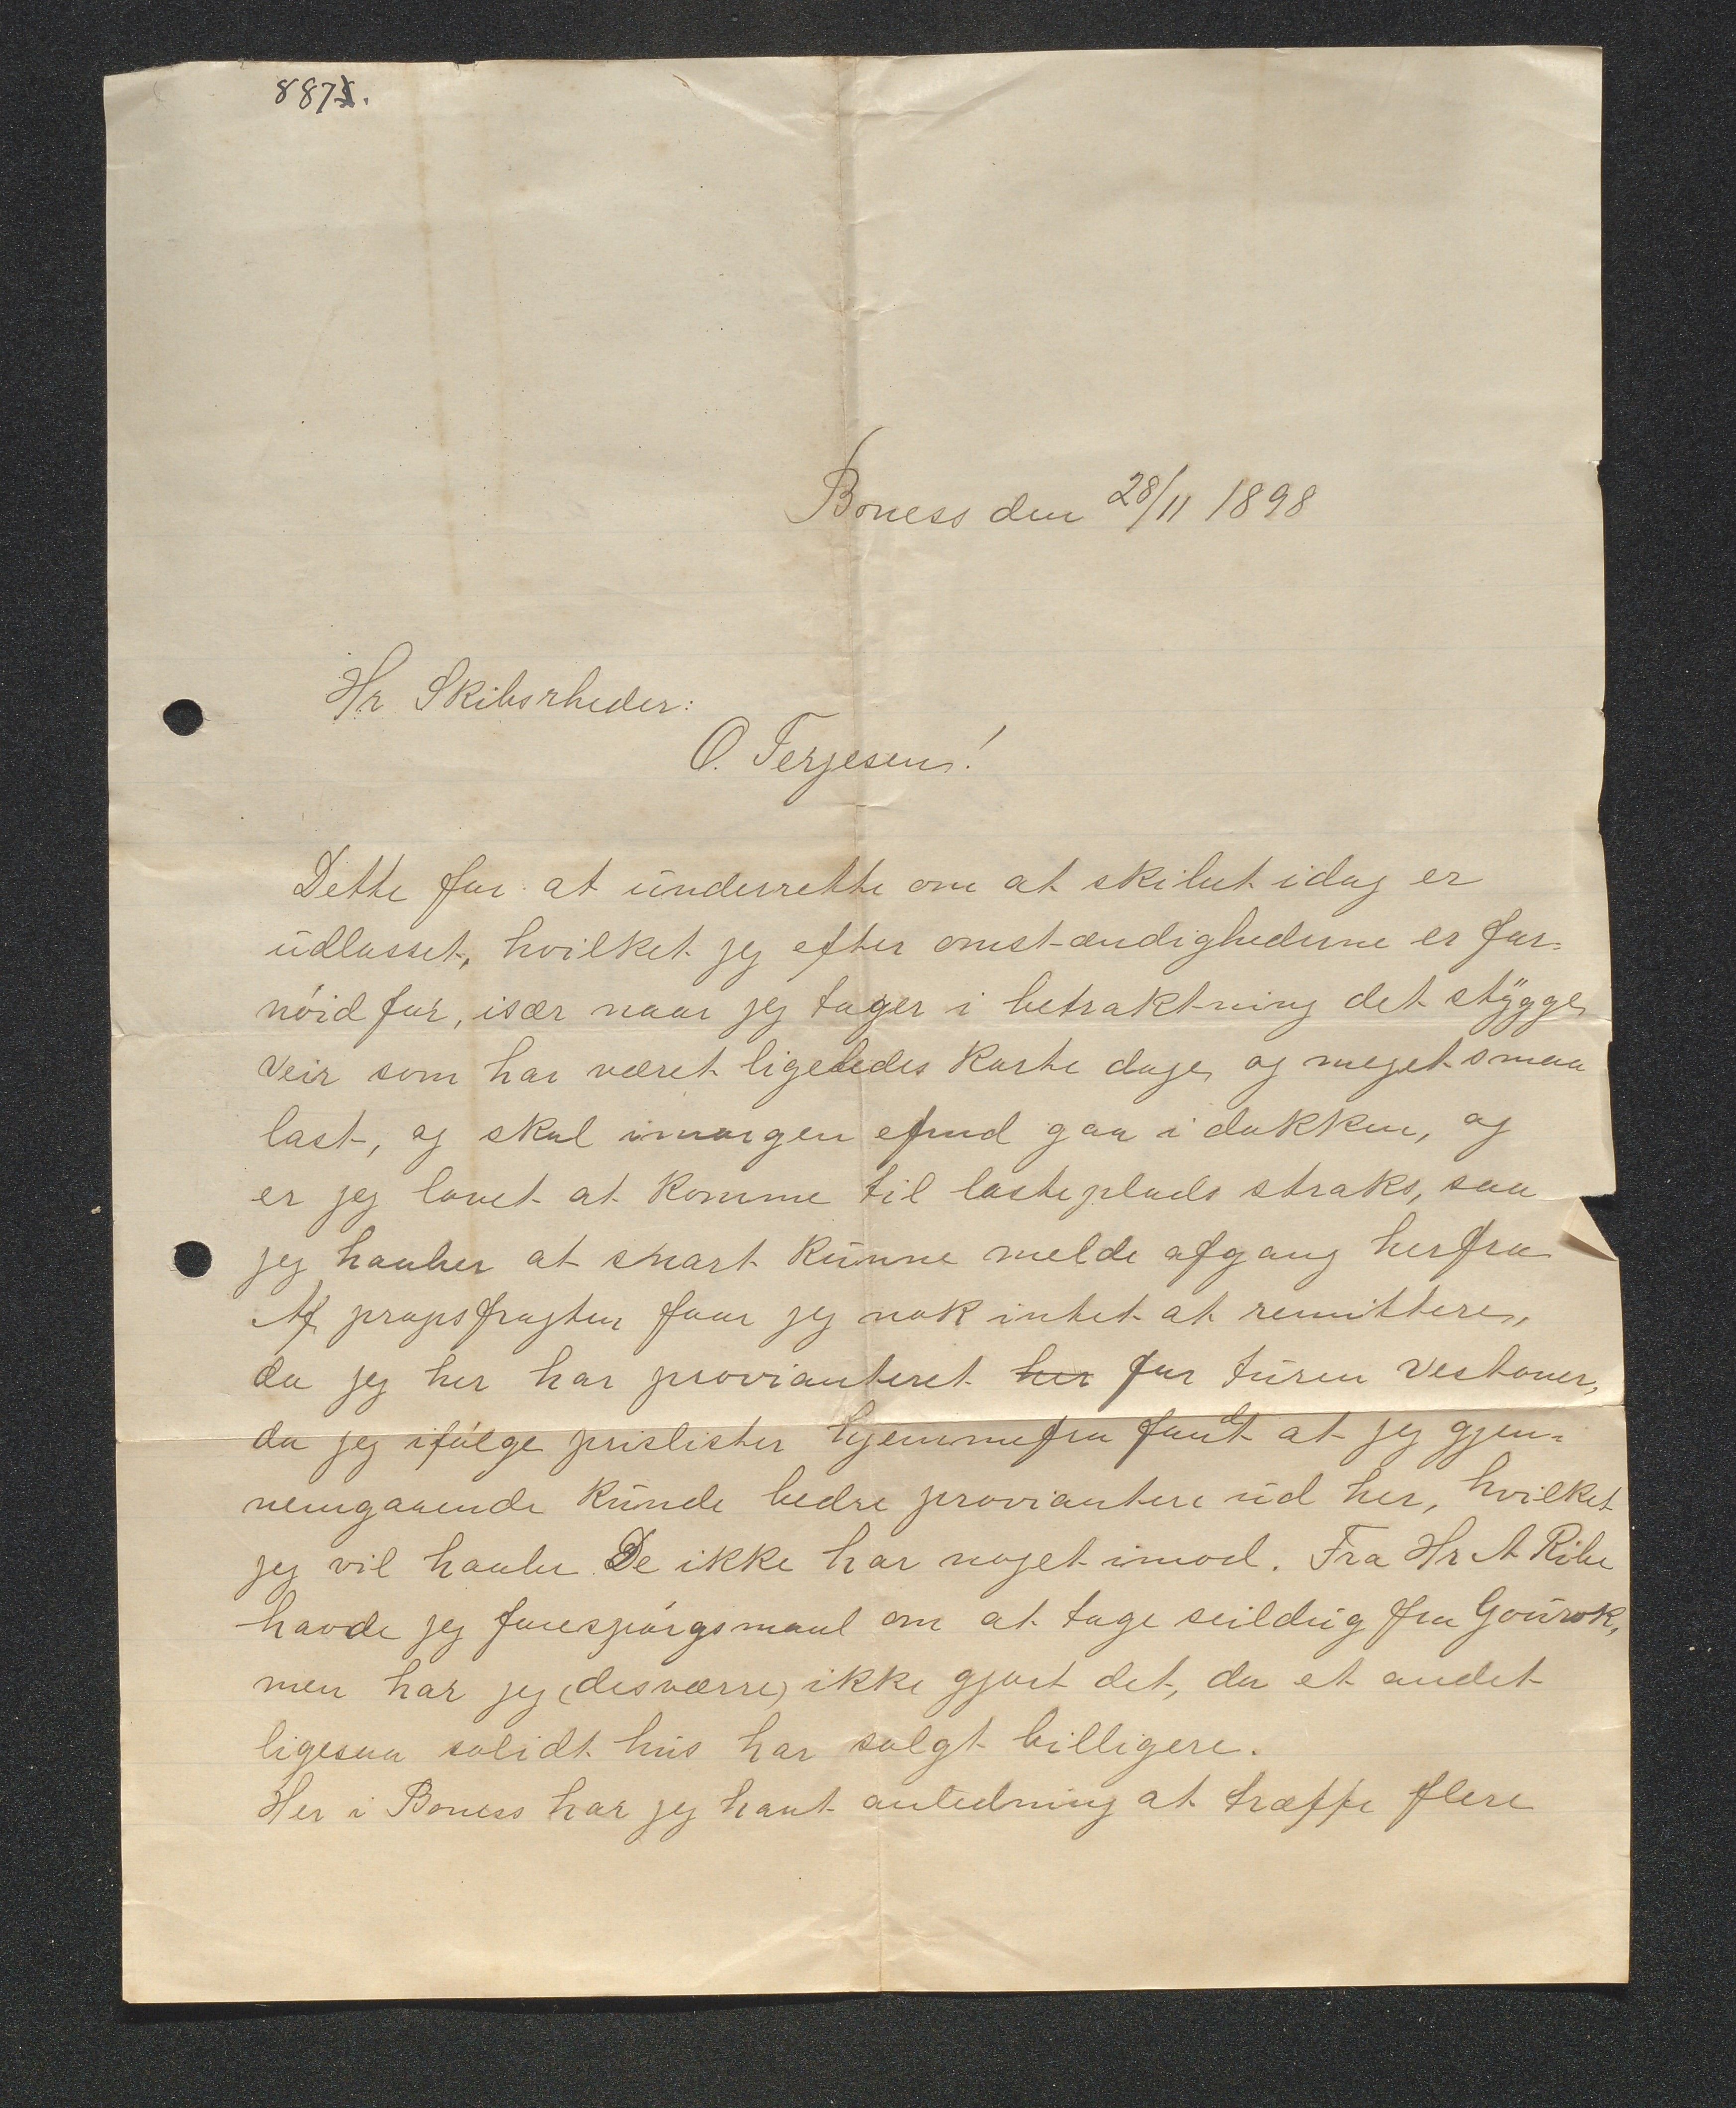 887
Boness den 28/11 1898
Hr Skibsrheder:
O. Terjesen!
Dette for at underrette om at skibet idag er
udlosset, hvilket jeg efter omstændighederne er for=
nöid for, især naar jeg tager i betraktning det stygge
veir som har været ligeledes korte dage og meget smaa
last, og skal imorgen efmd gaa i dokken, og
er jeg lovet at komme til lasteplads straks, saa
jeg haaber at snart kunne melde afgang herfra
Af propsfragten faar jeg nok intet at remittere,
da jeg her har provianteret her for turen vestover,
da jeg ifölge prislister hjemmefra fandt at jeg gjen=
nemgaaende kunde bedre proviantere ud her, hvilket
jeg vil haabe De ikke har noget imod. Fra Hr A Ribe
havde jeg forespörgsmaal om at tage seildug fra Gourok,
men har jeg (desværre) ikke gjort det, da et andet
ligesaa solidt hus har solgt billigere.
Her i Boness har jeg havt anledning at træffe flere